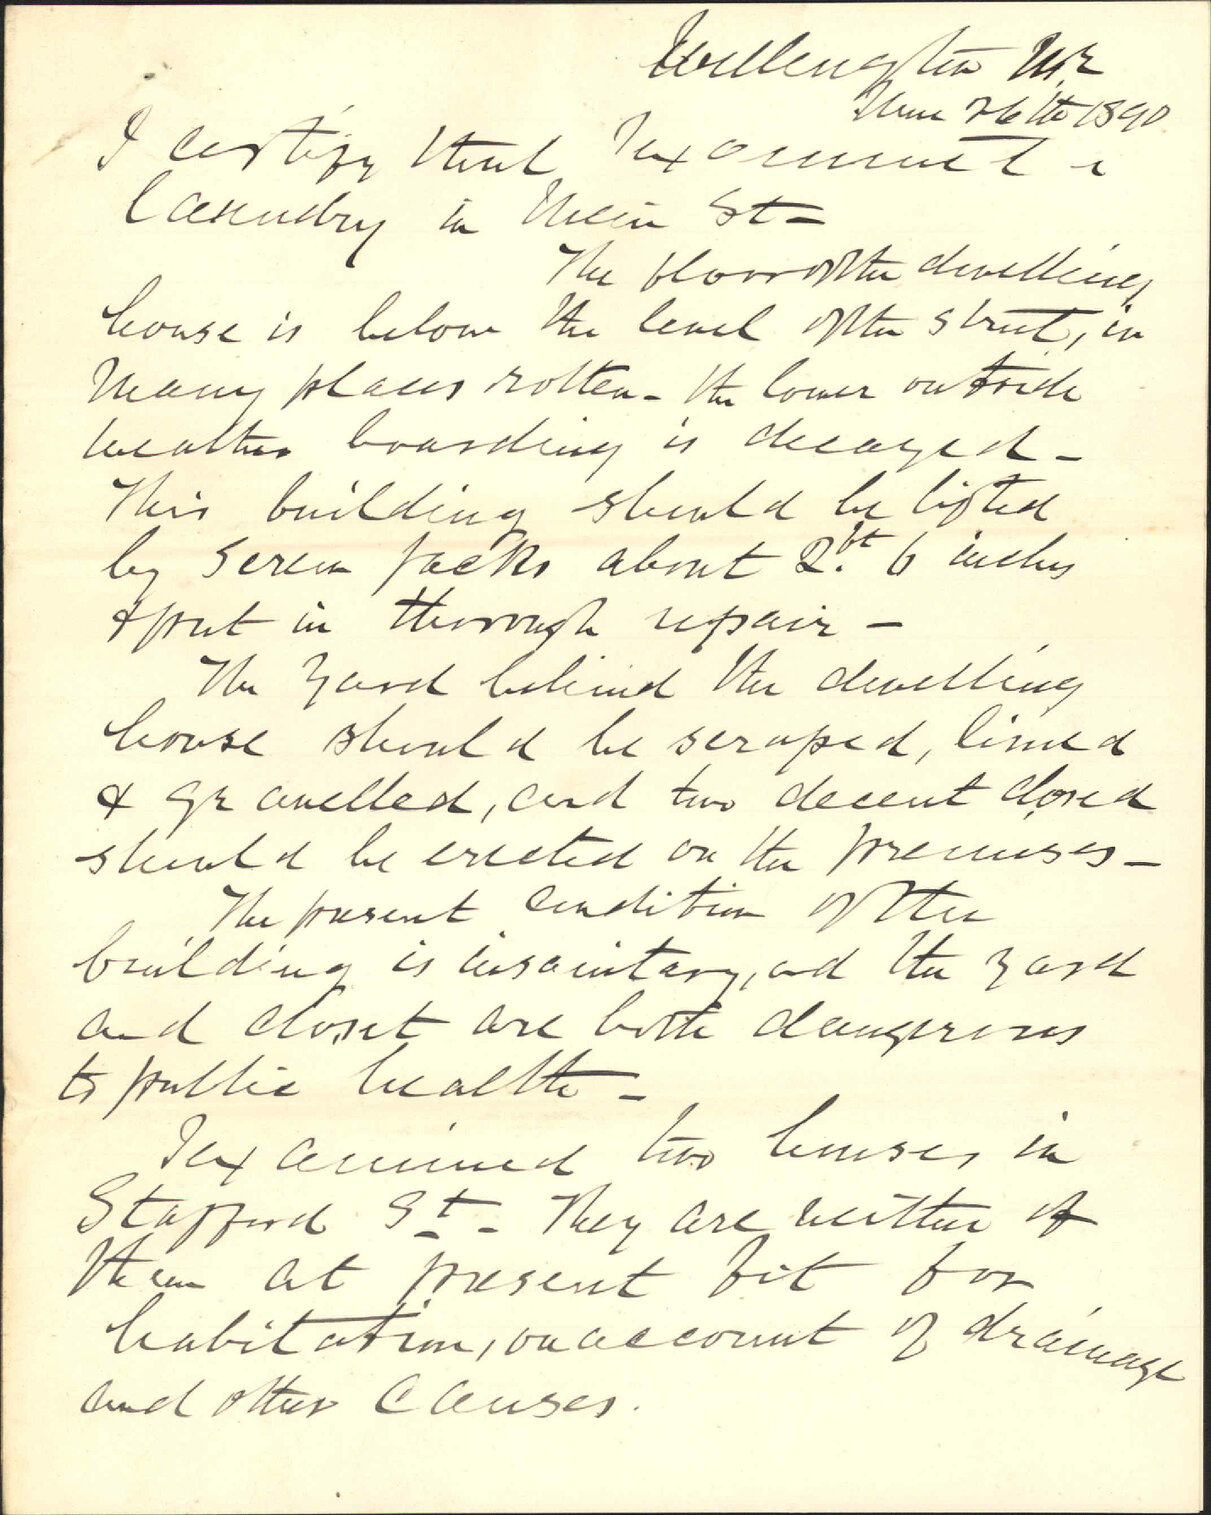 Wellington N.Z
June 26th 1890
I certify that I examined a
laundry in Main St -
The floor of the dwelling
house is below the level of the street, in
many places rotten - the lower outside
weather boarding is decayed -
This building should be lifted
by screw jacks about 2.ft 6 inches
& put in thorough repair -
The yard behind the dwelling
house should be scraped, limed
& gravelled, and two decent closed
should be erected on the premises -
The present condition of the
building is insanitary, and the yard
and closet are both dangerous
to public health -
I examined two houses in
Stafford St - They are neither of
them at present fit for
habitation, on account of drainage
and other causes.